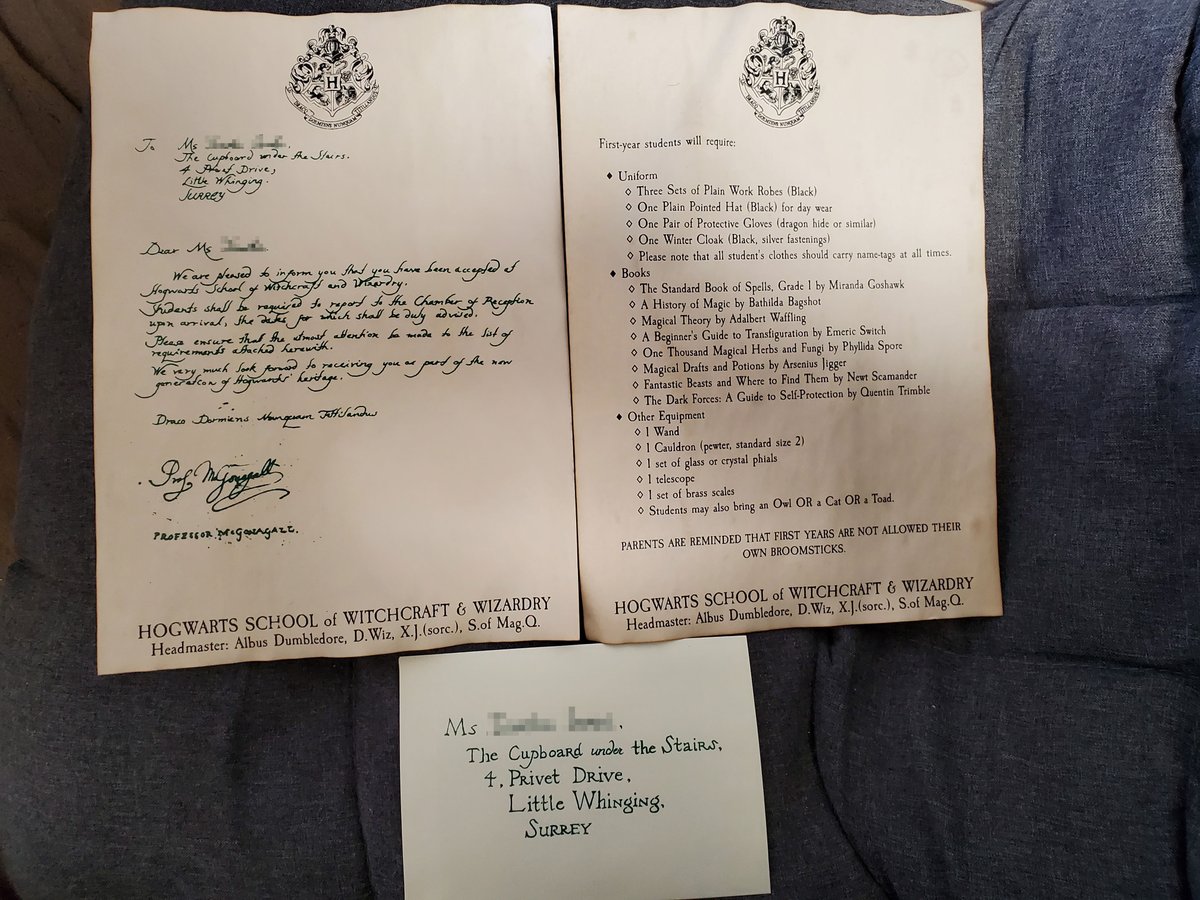 H
DRACO DORMIENS NUNQUAM TITILLANDUS
To Ms
The Cupboard under the Stairs.
4 Privet Drive,
Little Whinging.
SURREY
Dear Ms
We are pleased to inform you that you have been accepted at
Hogwarts School of Witchcraft and Wizardry.
Students shall be required to report to the Chamber of Reception
upon arrival, the dates for which shall be duly advised.
Please ensure that the utmost attention be made to the list of
requirements attached herewith.
We very much look forward to receiving you as part of the new
generation of Hogwarts' heritage.
Draco Dormiens Nunquam Titillandus
Prof McGonagall
PROFESSOR McGONAGALL.
HOGWARTS SCHOOL of WITCHCRAFT & WIZARDRY
Headmaster: Albus Dumbledore, D.Wiz, X.J.(sorc.), S.of Mag.Q.
H
DRACO DORMIENS NUNQUAM TITILLANDUS
First-year students will require:
♦ Uniform
◊ Three Sets of Plain Work Robes (Black)
◊ One Plain Pointed Hat (Black) for day wear
◊ One Pair of Protective Gloves (dragon hide or similar)
◊ One Winter Cloak (Black, silver fastenings)
◊ Please note that all student's clothes should carry name-tags at all times.
♦ Books
◊ The Standard Book of Spells, Grade 1 by Miranda Goshawk
◊ A History of Magic by Bathilda Bagshot
◊ Magical Theory by Adalbert Waffling
◊ A Beginner's Guide to Transfiguration by Emeric Switch
◊ One Thousand Magical Herbs and Fungi by Phyllida Spore
◊ Magical Drafts and Potions by Arsenius Jigger
◊ Fantastic Beasts and Where to Find Them by Newt Scamander
◊ The Dark Forces: A Guide to Self-Protection by Quentin Trimble
♦ Other Equipment
◊ 1 Wand
◊ 1 Cauldron (pewter, standard size 2)
◊ 1 set of glass or crystal phials
◊ 1 telescope
◊ 1 set of brass scales
◊ Students may also bring an Owl OR a Cat OR a Toad.
PARENTS ARE REMINDED THAT FIRST YEARS ARE NOT ALLOWED THEIR
OWN BROOMSTICKS.
HOGWARTS SCHOOL of WITCHCRAFT & WIZARDRY
Headmaster: Albus Dumbledore, D.Wiz, X.J.(sorc.), S.of Mag.Q.
Ms
The Cupboard under the Stairs,
4, Privet Drive,
Little Whinging,
SURREY